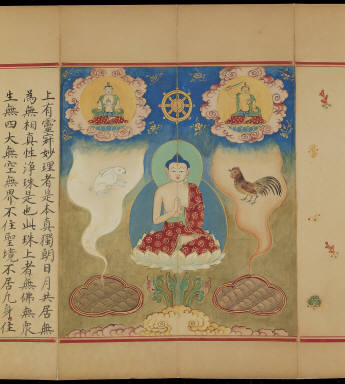 上有靈竅妙理者是本真獨朗日月共居無
為無相真性淨珠是也此珠上者無佛無衆
生無四大無空無界不住聖境不居凡身住